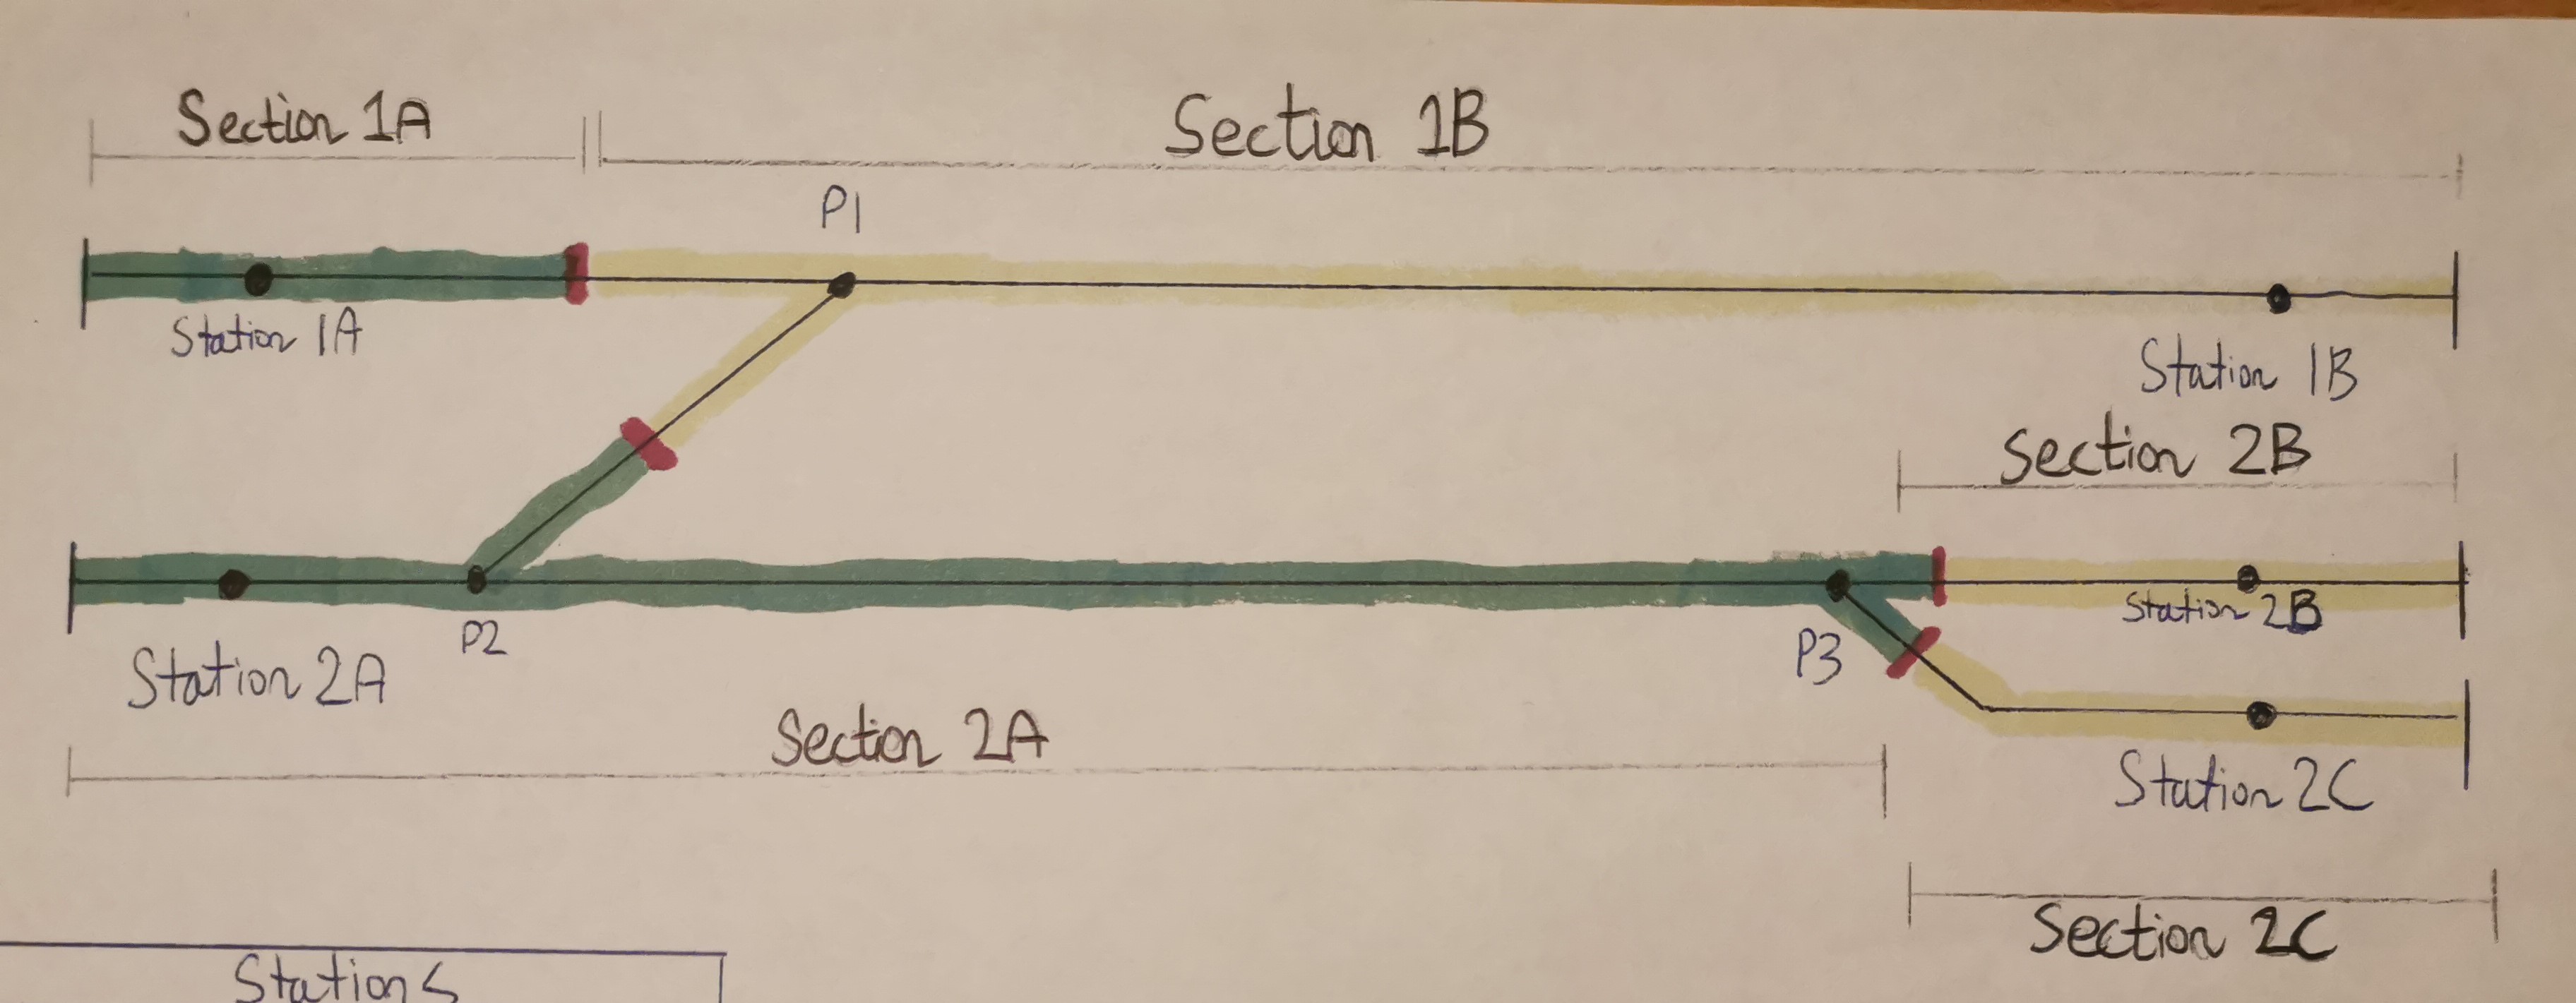 Section 1A
Section 1B
P1
Station 1A
Station 1B
Section 2B
Station 2B
P2
P3
Station 2A
Section 2A
Station 2C
Section 2C
Stations